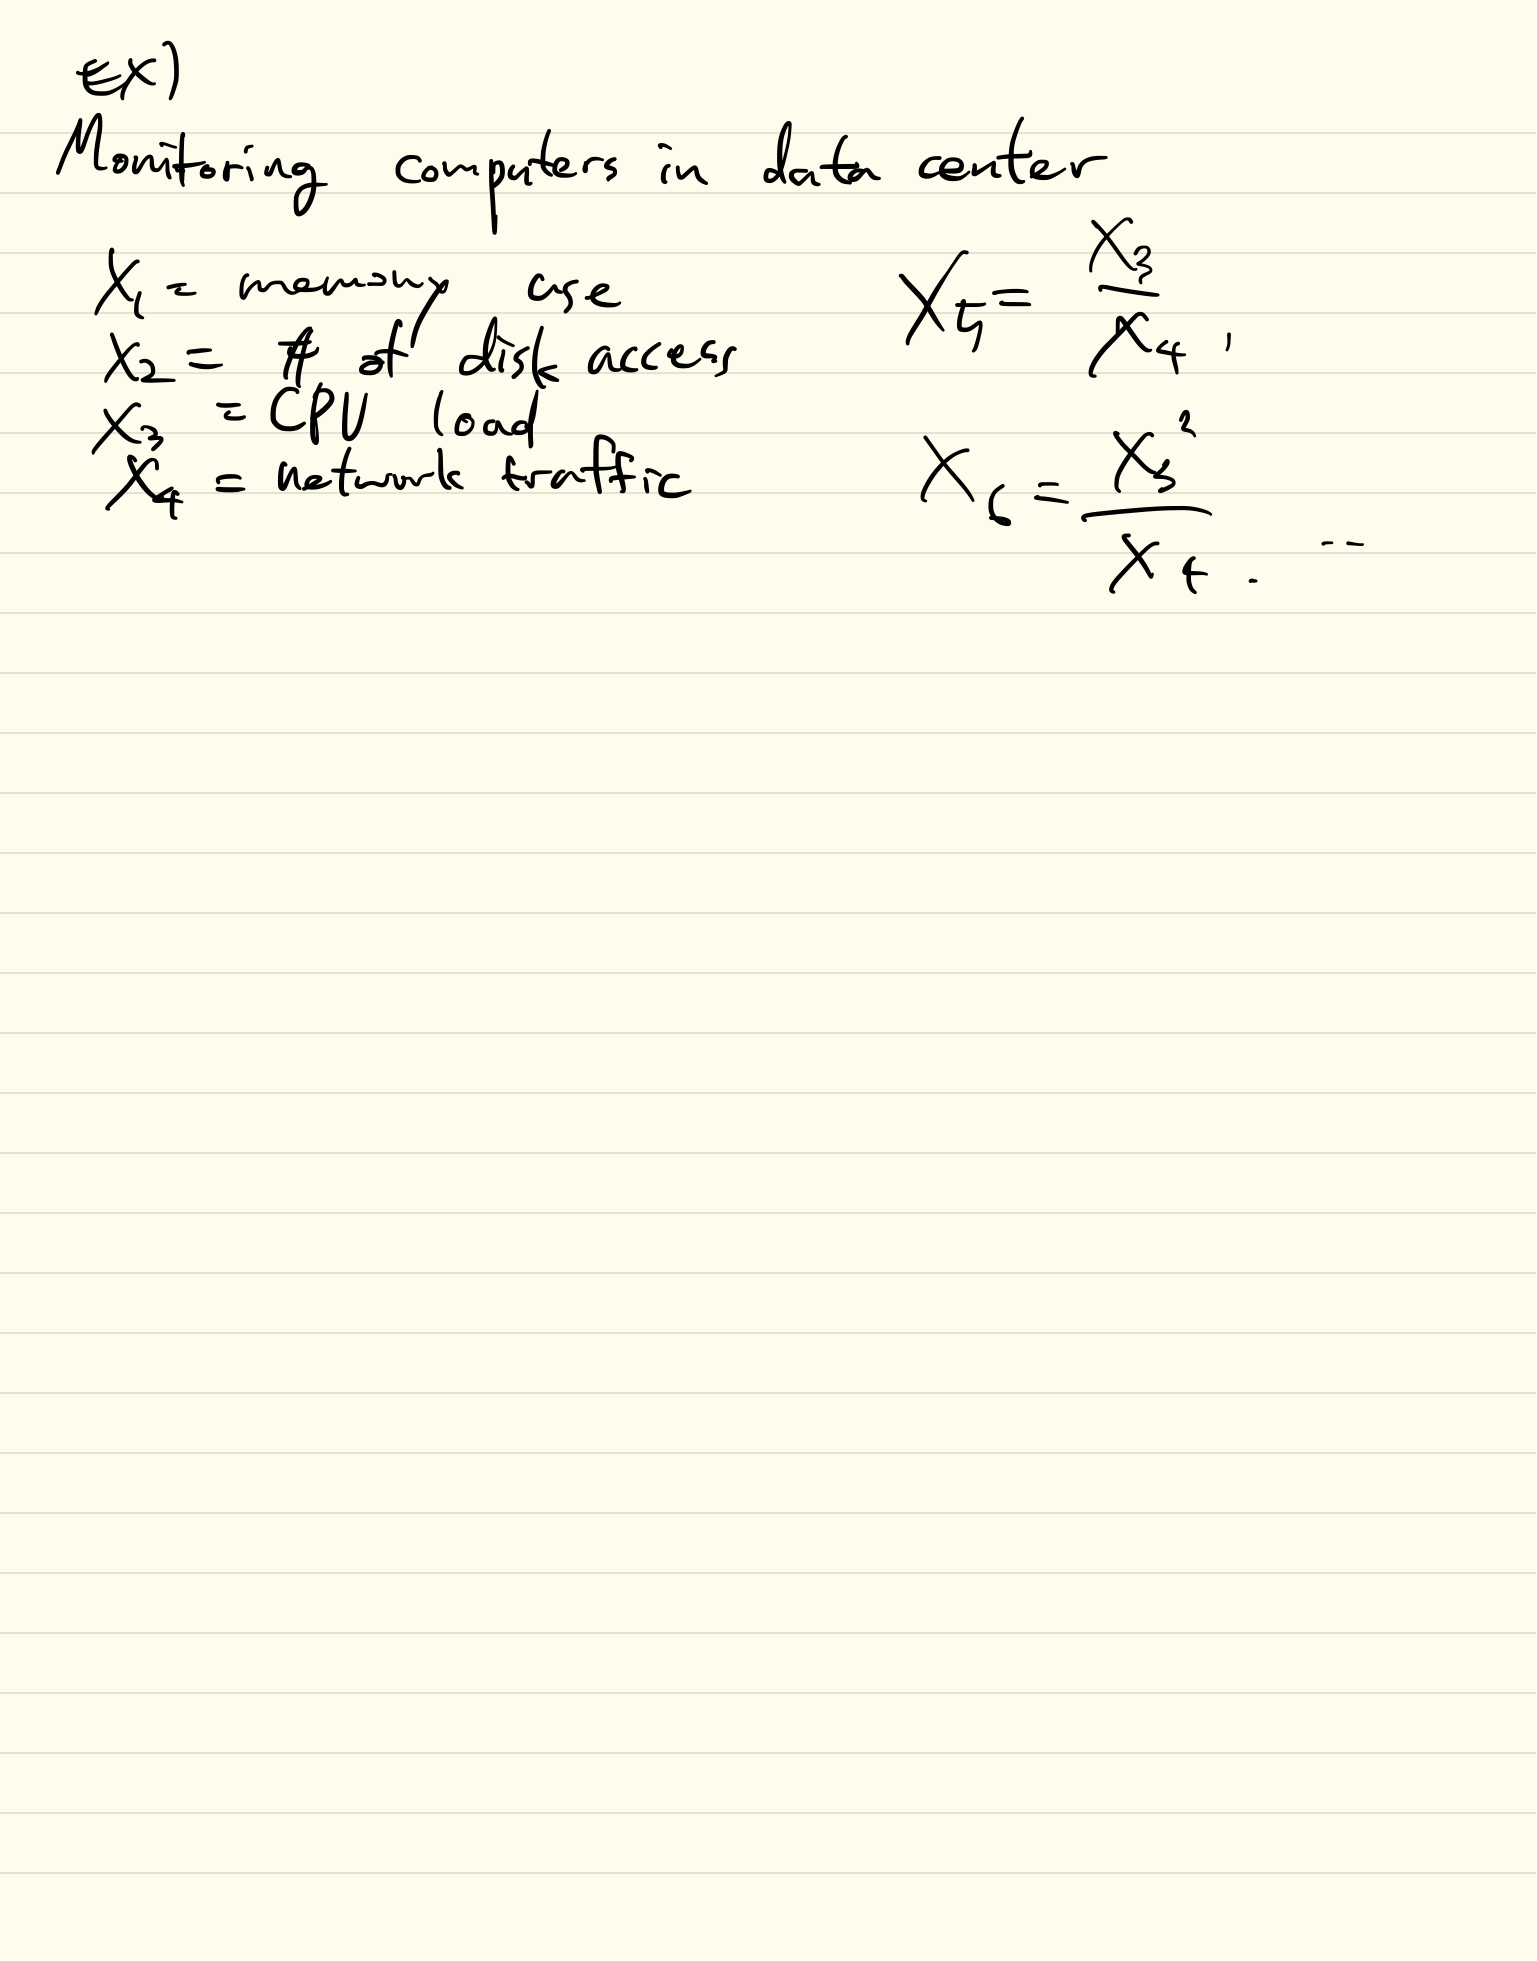 Ex)
Monitoring computers in data center
X₁ = memory use
X₂ = # of disk access
X₃ = CPU load
X₄ = network traffic
X₅ = X₃ / X₄ ,
X₆ = X₃² / X₄ . --